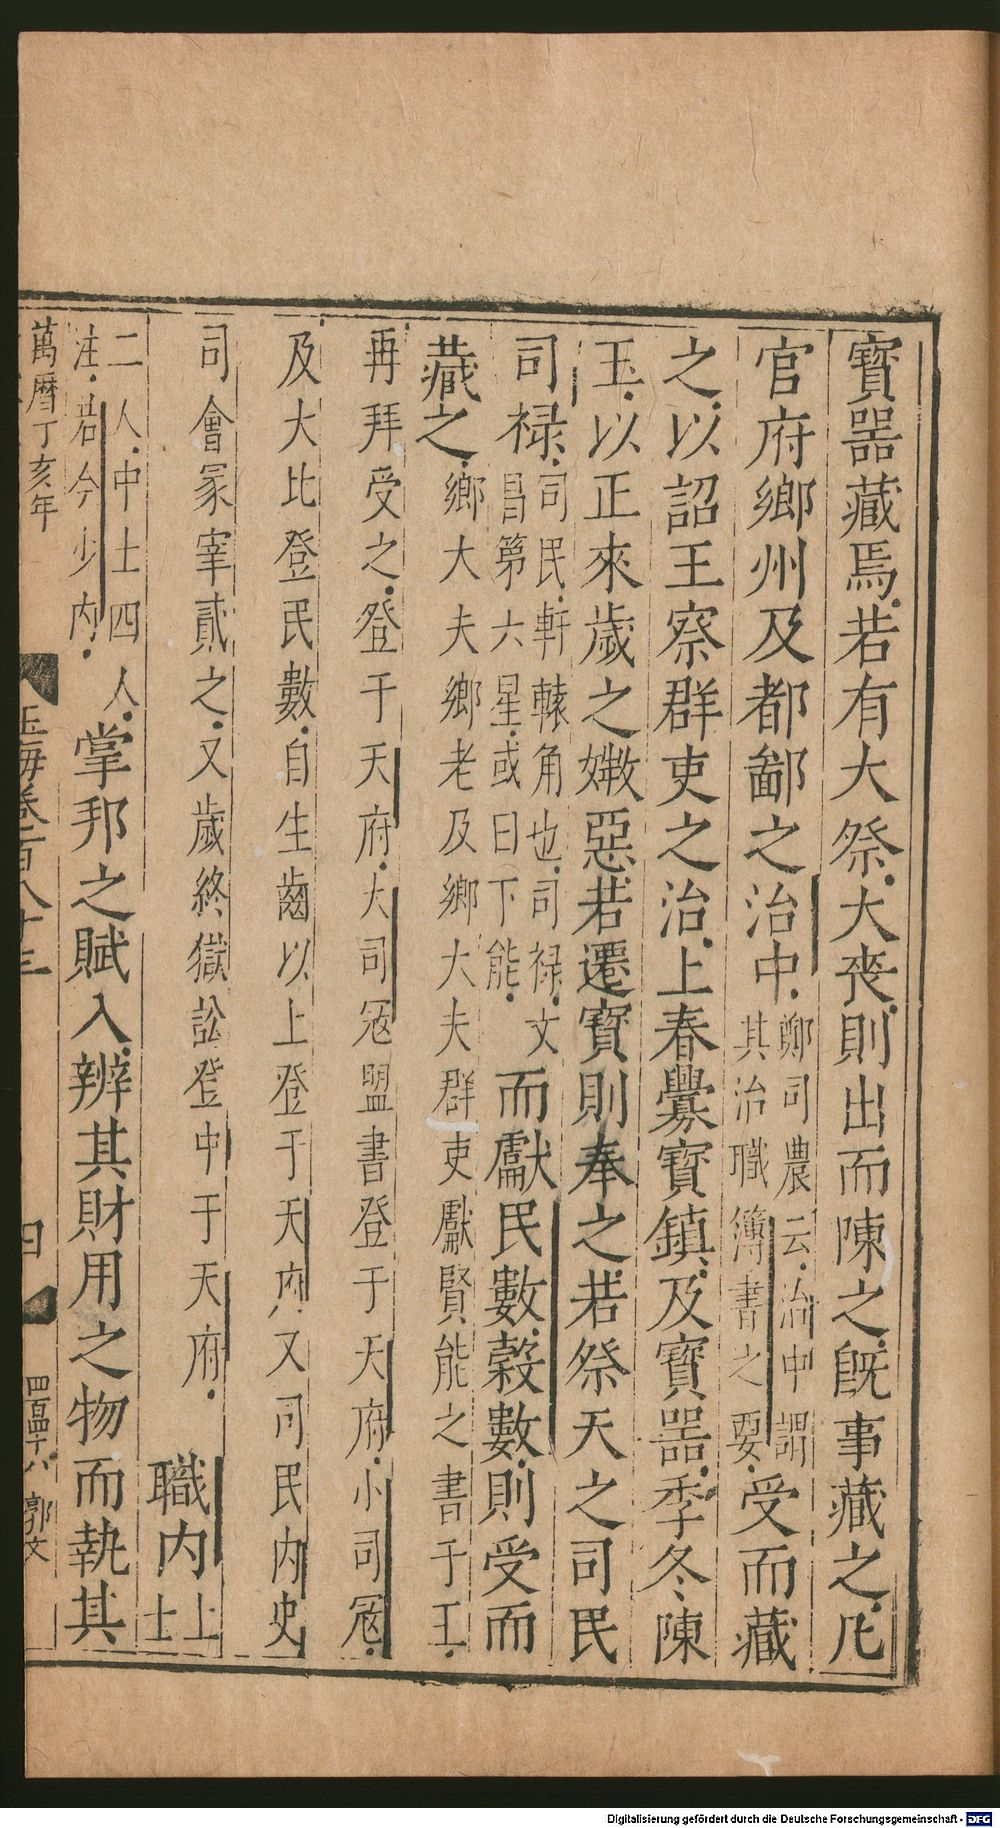 寶噐藏焉若有大祭大丧則出而陳之旣事藏之凡
官府鄉州及都鄙之治中鄭司農云治中謂其治職簿書之要受而藏
之以詔王察群吏之治上春釁寶鎮及寶噐季冬陳
玉以正來歲之媺惡若遷寶則奉之若祭天之司民
司禄司民軒轅角也司禄文昌第六星或曰下能而獻民數穀數則受而
藏之鄉大夫鄉老及鄉大夫群吏獻賢能之書于王
再拜受之登于天府大司冦盟書登于天府小司冦
及大比登民數自生齒以上登于天府又司民内史
司會冢宰貳之又歲終獄訟登中于天府 職内上士
二人中士四人注若今少内掌邦之賦入辨其財用之物而執其
萬曆丁亥年
玉海卷一百八十三
四
四百四十八 郭文
Digitalisierung gefördert durch die Deutsche Forschungsgemeinschaft - DFG